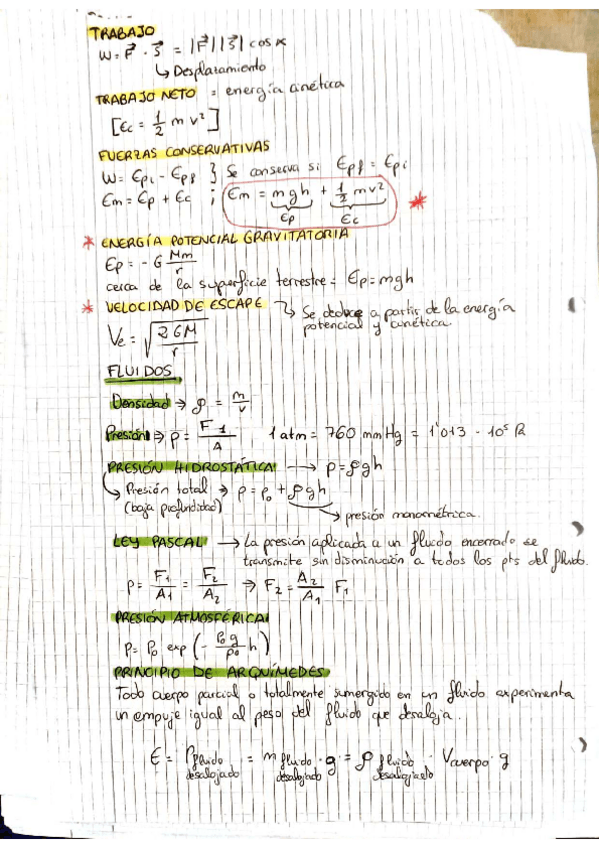 TRABAJO
W = F⃗ · S⃗ = |F⃗| |S⃗| cos α
↳ Desplazamiento
TRABAJO NETO = energía cinética
[Ec = 1/2 m v²]
FUERZAS CONSERVATIVAS
W = Epi - Epf } Se conserva si Epf = Epi
Em = Ep + Ec ; Em = mgh + 1/2 mv² *
Ep Ec
* ENERGÍA POTENCIAL GRAVITATORIA
Ep = - G Mm/r
cerca de la superficie terrestre = Ep = mgh
* VELOCIDAD DE ESCAPE ↳ Se deduce a partir de la energía
potencial y cinética.
Ve = √(2GM/r)
FLUIDOS
Densidad → ρ = m/v
Presión → p = F⊥/A 1 atm = 760 mmHg = 1'013 · 10⁵ Pa
PRESIÓN HIDROSTÁTICA → p = ρgh
↳ Presión total → p = p₀ + ρgh
(baja profundidad) → presión manométrica.
LEY PASCAL → La presión aplicada a un fluido encerrado se
transmite sin disminución a todos los pts del fluido.
p = F₁/A₁ = F₂/A₂ → F₂ = A₂/A₁ F₁
PRESIÓN ATMOSFÉRICA
p = p₀ exp (- ρ₀g/p₀ h)
PRINCIPIO DE ARQUÍMEDES
Todo cuerpo parcial o totalmente sumergido en un fluido experimenta
un empuje igual al peso del fluido que desaloja.
E = Pfluido desalojado = m fluido desalojado · g = ρ fluido desalojado · Vcuerpo · g